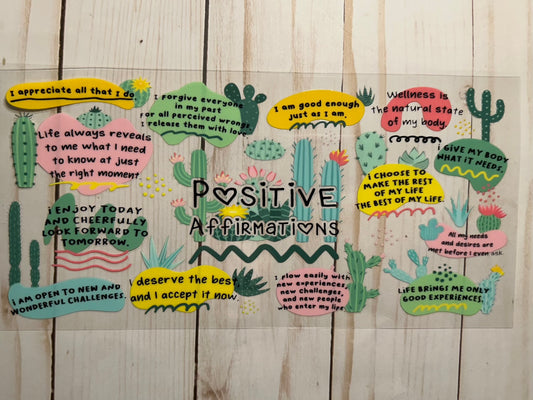 I appreciate all that I do
I Forgive everyone
in my past
For all perceived wrongs.
I release them with love.
I am good enough
just as I am.
Wellness is
the natural state
of my body.
Life always reveals
to me what I need
to know at just
the right moment
GIVE MY BODY
WHAT IT NEEDS.
I CHOOSE TO
MAKE THE REST
OF MY LIFE
THE BEST OF MY LIFE.
POSITIVE
AFFIRMATIONS
I ENJOY TODAY
AND CHEERFULLY
LOOK FORWARD TO
TOMORROW.
All my needs
and desires are
met before I even ask.
I AM OPEN TO NEW AND
WONDERFUL CHALLENGES.
I deserve the best
and I accept it now.
I flow easily with
new experiences,
new challenges,
and new people
who enter my life
LIFE BRINGS ME ONLY
GOOD EXPERIENCES.